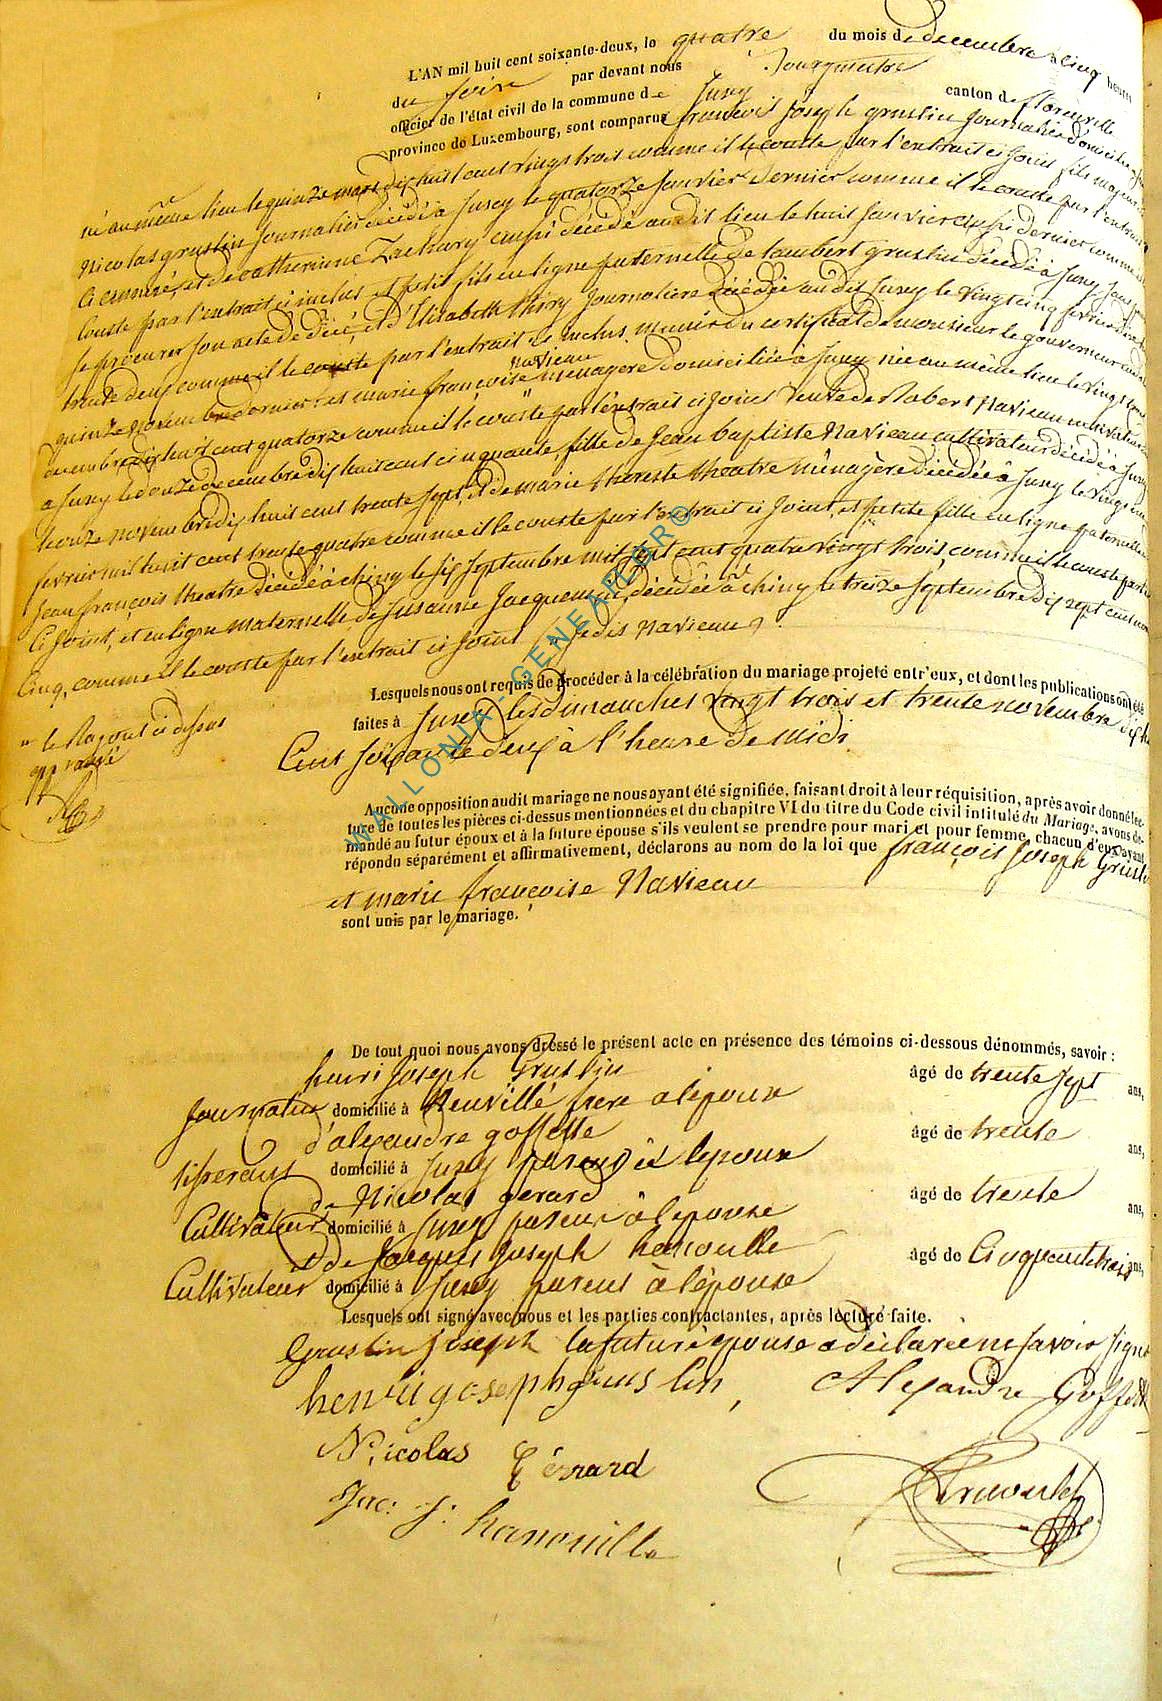 L'AN mil huit cent soixante-deux, le quatre du mois de decembre a cinq heures
du soire par devant nous Bourgmestre
officier de l'état civil de la commune de Suxy canton de florenville
province de Luxembourg, sont comparus françois Joseph grustin Journalier domicilié a
né au même lieu le quinze mars dix huit cent vingt trois comme il le conste par l'extrait ci joint fils majeur
Nicolas grustin Journalier décédé à Suxy le quatorze Janvier dernier comme il le conste par l'extrait
ci annéxé, et de catherinne Zachary aussi décédé audit lieu le huit Janvier aussi dernier comme
Conste par l'extrait ci inclus et petit fils en ligne paternelle de lambert grustin décédé à Suxy sans
se procurer son acte de décé, et d'Elisabeth thiry Journaliere décédée audit Suxy le vingt cinq fevrier
trente deux comme il le conste par l'extrait ci inclus. muni du certificat de monsieur le gouverneur
quinze novembre dernier: et marie françoise navieau ménagere domiciliée à Suxy née au même lieu le vingt
decembre dix huit cent quatorze comme il le conste par l'extrait ci joint veuve de Robert Navieau cultivateur
a Suxy le douze decembre dix huit cent cinquante, fille de Jean baptiste Navieau cultivateur décédé à Suxy
novembre dix huit cent trente sept, et de marie thereste theatre ménagère décédée à Suxy le vingt
fevrier mil huit cent trente quatre comme il le conste par l'extrait ci Joint, et petite fille en ligne paternelle
Jean françois theatre décédé à chiny le six septembre mil sept cent quatre vingt trois, comme il le conste par
ci Joint, et en ligne maternelle de susanne Jacquemin, décédée à chiny le treize septembre dix sept cent
Cinq, comme il le conste par l'extrait ci Joint Je dis Navieau
Lesquels nous ont requis de procéder à la célébration du mariage projeté entr'eux, et dont les publications ont été
faites à Suxy les dimanches vingt trois et trente novembre dix
Cent soixante deux à l'heure de midi
le Rajout ci dessus
approuvé
Aucune opposition audit mariage ne nous ayant été signifiée, faisant droit à leur réquisition, après avoir donné lec-
ture de toutes les pièces ci-dessus mentionnées et du chapitre VI du titre du Code civil intitulé du Mariage, avons de-
mandé au futur époux et à la future épouse s'ils veulent se prendre pour mari et pour femme, chacun d'eux ayant
répondu séparément et affirmativement, déclarons au nom de la loi que françois Joseph Grustin
et marie françoise Navieau
sont unis par le mariage.
De tout quoi nous avons dressé le présent acte en présence des témoins ci-dessous dénommés, savoir :
henri Joseph Grustin âgé de trente sept ans,
Journalier domicilié à Neuvillé frere a lépoux
d'alexandre goffette âgé de trente ans,
tisserant domicilié à Suxy parent à lépoux
de Nicolas gerard âgé de trente ans,
Cultivateur domicilié à Suxy parent à lépouse
et de Jacques Joseph hanouille âgé de Cinquante trois ans,
Cultivateur domicilié à Suxy parent à lépouse
Lesquels ont signé avec nous et les parties contractantes, après lecture faite.
Grustin Joseph la future épouse a déclaré ne savoir signé
henri gosephgrus lin, Alexandre Goffette
Nicolas Gérrard
Jac: J: hanouille
WALLONIA-GENEAPLER©